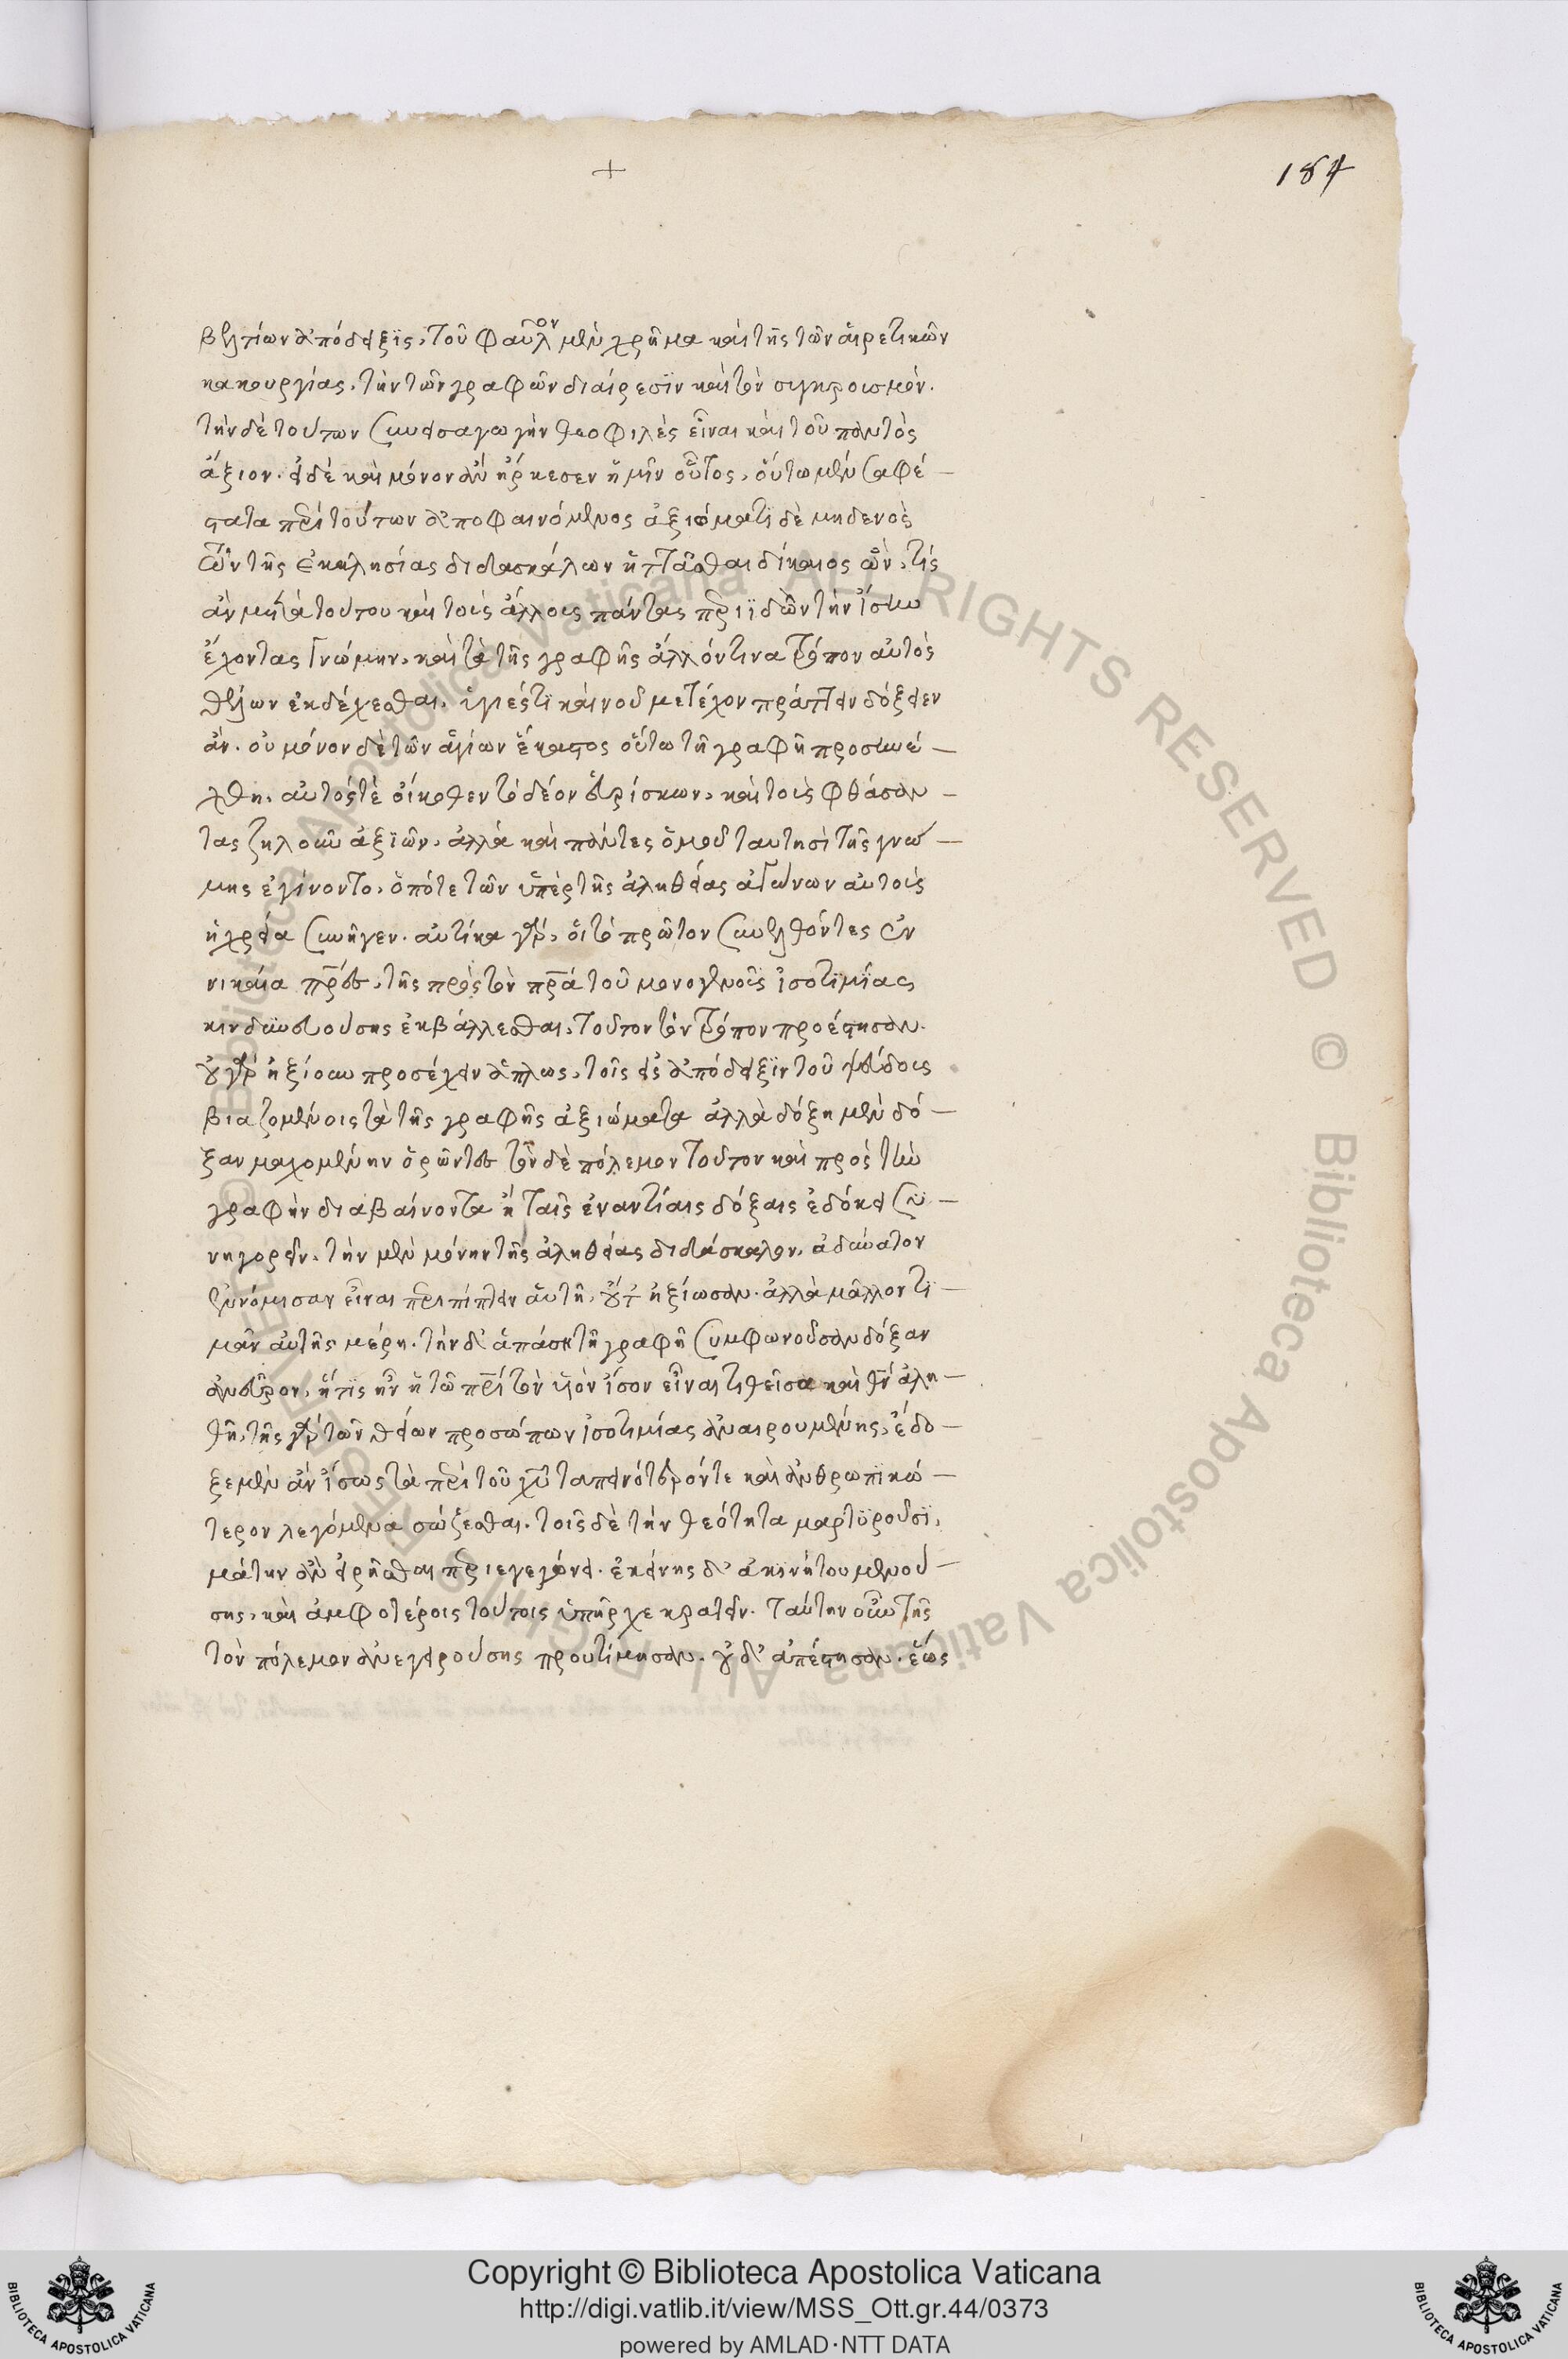 +
184
βελτίων ἀπόδειξις, τοῦ φαῦλον μὲν χρῆμα καὶ τῆς τῶν αἱρετικῶν
κακουργίας, τὴν τῶν γραφῶν διαίρεσϊν καὶ τὸν συγκροισμόν.
τὴν δὲ τούτων συνεισαγωγὴν θεοφιλὲς εἶναι καὶ τοῦ παντὸς
ἄξιον. εἰ δὲ καὶ μόνον ἂν ἤρκεσεν ἡμῖν οὗτος, οὕτω μὲν σαφέ –
στατα περὶ τούτων ἀποφαινόμενος ἀξιώματϊ δὲ μηδενὸς
τῶν τῆς ἐκκλησίας διδασκάλων ἡττᾶσθαι δίκαιος ὤν, τίς
ἂν μετὰ τούτου καὶ τοὺς ἄλλους πάντας περιϊδὼν τὴν ἴσην
ἔχοντας γνώμην, καὶ τὰ τῆς γραφῆς ἀλλόντινα τρόπον αὐτὸς
θέλων ἐκδέχεσθαι, ὑγιές τϊ καὶ νοῦ μετέχον πράττειν δόξειεν
ἄν. οὐ μόνον δὲ τῶν ἁγίων ἕκαστος οὕτω τῆ γραφῆ προσηνέ –
χθη, αὐτός τὲ οἴκοθεν τὸ δέον εὑρίσκων, καὶ τοὺς φθάσαν –
τας ζηλοῦν ἀξϊῶν, ἀλλὰ καὶ πάντες ὁμοῦ ταυτησὶ τῆς γνώ –
μης ἐγίνοντο, ὁπότε τῶν ὑπὲρ τῆς ἀληθείας ἀγώνων αὐτοὺς
ἡ χρεία συνῆγεν. αὐτίκα γὰρ, οἱ τὸ πρῶτον συνελθόντες ἐν
νικαία πρες, τῆς πρὸς τὸν πρα τοῦ μονογενοῦς ἰσοτϊμίας
κινδυνευούσης ἐκβάλλεσθαι, τοῦτον τὸν τρόπον προέστησαν.
οὐ γὰρ ἠξίουν προσέχειν ἁπλῶς, τοῖς εἰς ἀπόδειξϊν τοῦ ψεύδους
βιαζομένοις τὰ τῆς γραφῆς ἀξιώματα ἀλλὰ δόξη μὲν δό –
ξαν μαχομένην ὁρῶντες τὸν δὲ πόλεμον τοῦτον καὶ πρὸς τὴν
γραφὴν διαβαίνοντα ἢ ταῖς ἐναντίαις δόξαις ἐδόκει συ –
νηγορεῖν, τὴν μὲν μόνην τῆς ἀληθείας διδάσκαλον, ἀδύνατον
ἐνόμισαν εἶναι περιπίπτειν ἑαυτῆ, οὔτ ἠξίωσαν. ἀλλὰ μᾶλλον τϊ –
μᾶν αὐτῆς μέρη. τὴν δ' ἁπάση τῆ γραφῆ συμφωνοῦσαν δόξαν
ἀνεῦρον, ἥτις ἦν ἡ τῶ πρι τὸν υἱὸν ἴσον εἶναι τιθεῖσα καὶ θν ἀλη –
θῆ, τῆς γὰρ τῶν θείων προσώπων ἰσοτιμίας ἀναιρουμένης, ἔδο –
ξε μὲν ἂν ἴσως τὰ περὶ τοῦ χυ ταπεινότερόν τε καὶ ἀνθρωπϊκώ –
τερον λεγόμενα σώζεσθαι. τοῖς δὲ τὴν θεότητα μαρτϋροῦσϊ,
μάτην ἂν εἰρῆσθαι περιεγεγόνει. ἐκείνης δ' ἀκινήτου μενού –
σης, καὶ ἀμφοτέροις τούτοις ὑπῆρχε κρατεῖν. ταύτην οὖν τῆς
τὸν πόλεμον ἀνεγειρούσης προυτίμησαν. οὐδ' ἀπέστησαν. ἕως
Copyright © Biblioteca Apostolica Vaticana
http://digi.vatlib.it/view/MSS_Ott.gr.44/0373
powered by AMLAD·NTT DATA
BIBLIOTECA APOSTOLICA VATICANA
BIBLIOTECA APOSTOLICA VATICANA